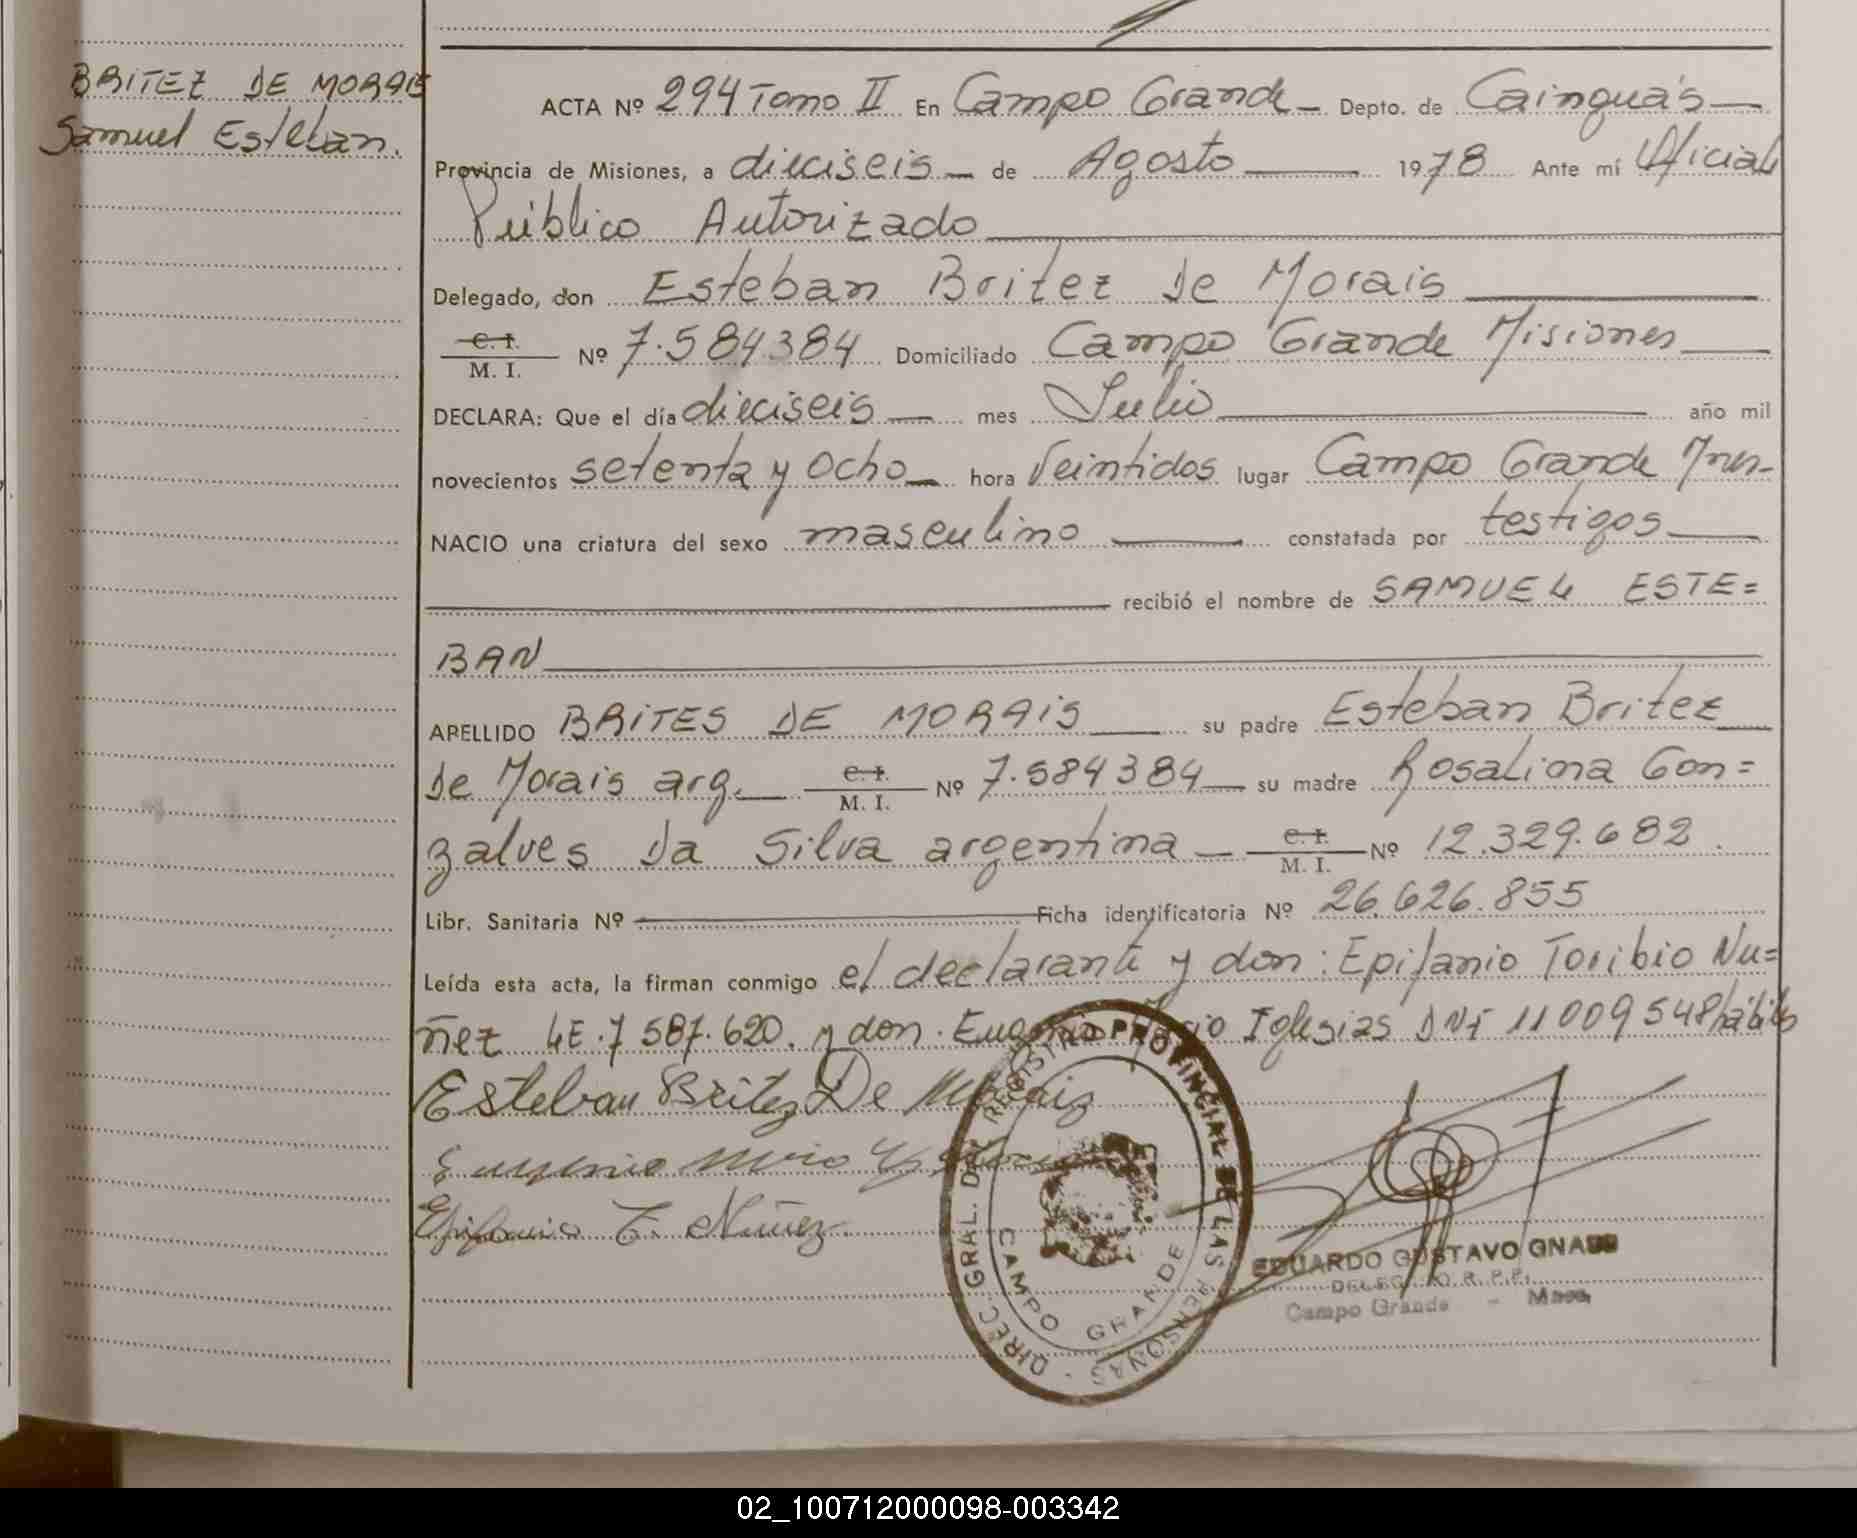 BRITEZ DE MORAIS
Samuel Esteban.
ACTA Nº 294 Tomo II En Campo Grande Depto. de Cainguás
Provincia de Misiones, a dieciseis de Agosto 1978 Ante mí Oficial
Público Autorizado
Delegado, don Esteban Britez De Morais
C. I.
M. I. Nº 7.584384 Domiciliado Campo Grande Misiones
DECLARA: Que el día dieciseis mes Julio año mil
novecientos setenta y ocho hora Veintidos lugar Campo Grande Mnes-
NACIO una criatura del sexo masculino constatada por testigos
recibió el nombre de SAMUEL ESTE=
BAN
APELLIDO BRITES DE MORAIS su padre Esteban Britez
De Morais arg. C. I. M. I. Nº 7.584384 su madre Rosalina Gon=
zalves Da Silva argentina C. I. M. I. Nº 12.329.682.
Libr. Sanitaria Nº Ficha identificatoria Nº 26.626.855
Leída esta acta, la firman conmigo el declarante y don: Epifanio Toribio Nu=
ñez LE.7 587.620. y don. Eugenio Iglesias DNI 11009548 hábiles
Esteban Britez De Moraiz
Eugenio
Epifanio T. Núñez.
DIREC. GRAL. DEL REGISTRO PROVINCIAL DE LAS PERSONAS
CAMPO GRANDE
EDUARDO GUSTAVO
DELEGADO R. P. P.
Campo Grande - Mnes.
02_100712000098-003342